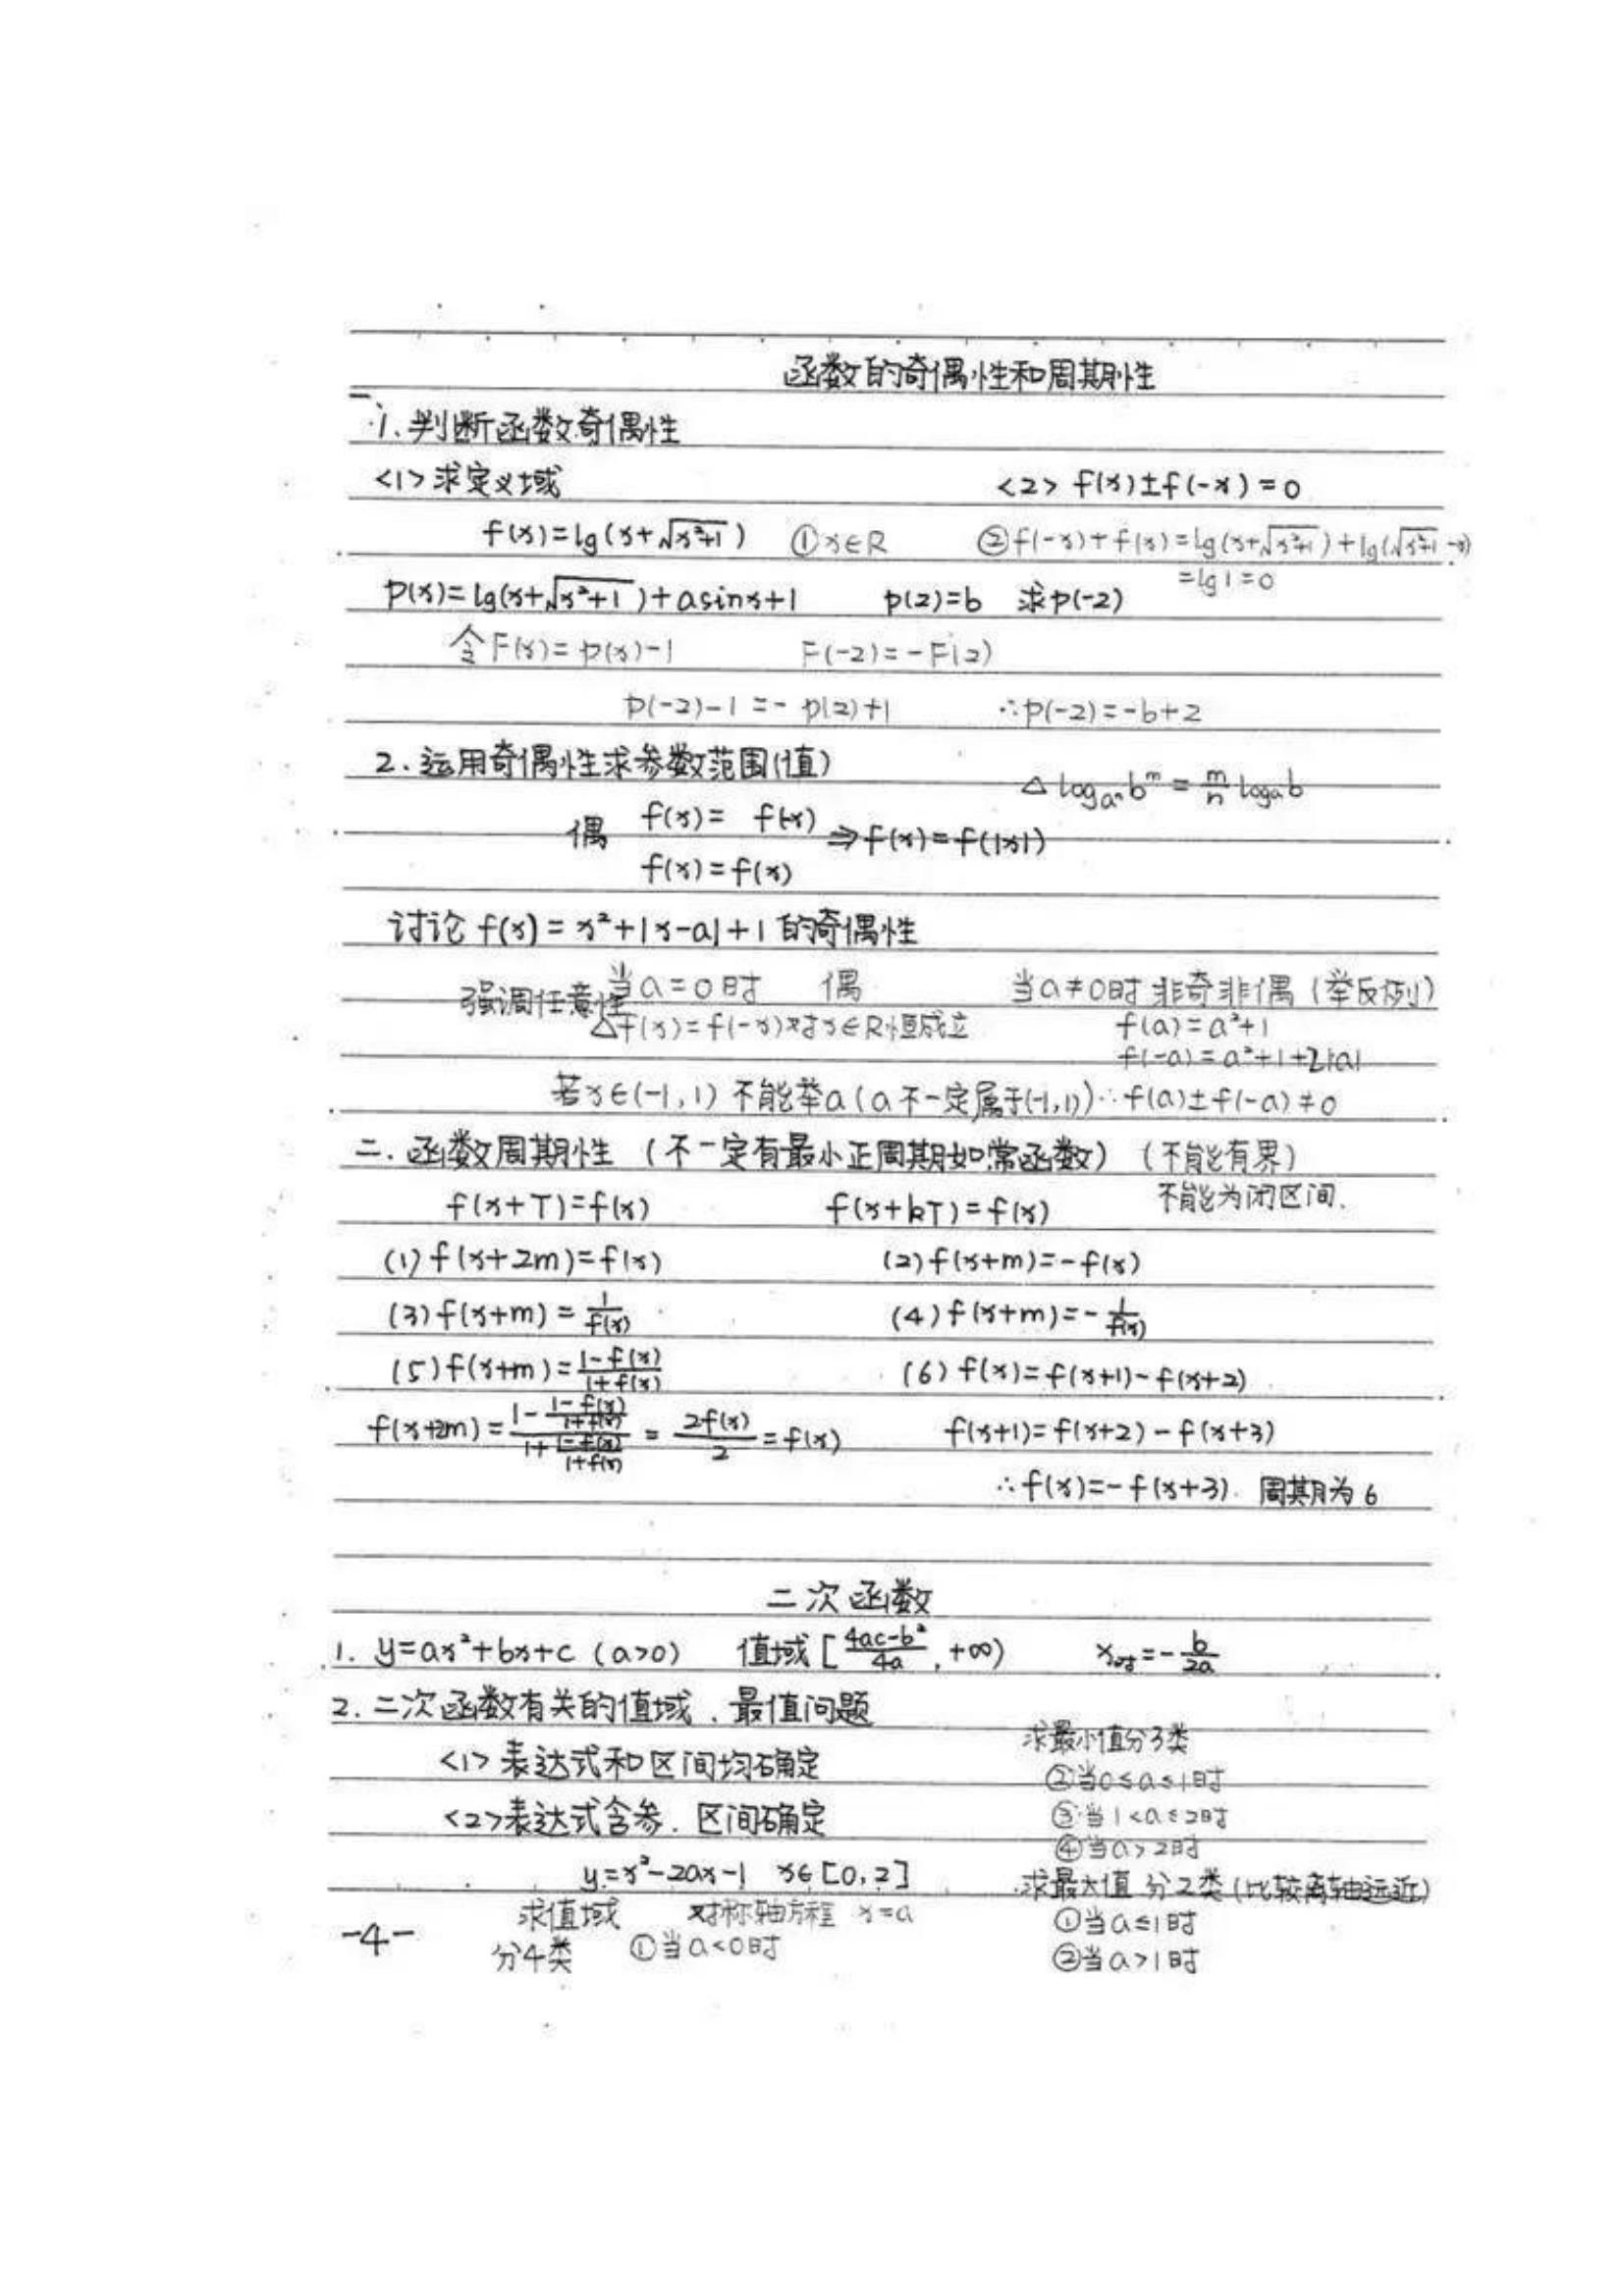 函数的奇偶性和周期性
一、
1.判断函数奇偶性
<1>求定义域 <2> f(x)±f(-x)=0
f(x)=lg(x+√(x²+1)) ①x∈R ②f(-x)+f(x)=lg(x+√(x²+1))+lg(√(x²+1)-x)
=lg1=0
p(x)=lg(x+√(x²+1))+asinx+1 p(2)=b 求p(-2)
令F(x)=p(x)-1 F(-2)=-F(2)
p(-2)-1=-p(2)+1 ∴p(-2)=-b+2
2.运用奇偶性求参数范围(值)
△ log_{aⁿ}b^m = m/n log_a b
偶 f(x)= f(-x) ⇒f(x)=f(|x|)
f(x)=f(x)
讨论 f(x)=x²+|x-a|+1 的奇偶性
强调任意性 当a=0时 偶 当a≠0时 非奇非偶(举反例)
△f(x)=f(-x)对x∈R恒成立 f(a)=a²+1
f(-a)=a²+1+2|a|
若x∈(-1,1) 不能举a(a不一定属于(-1,1)) ∴f(a)±f(-a)≠0
二.函数周期性 (不一定有最小正周期如常函数) (不能有界)
不能为闭区间.
f(x+T)=f(x) f(x+kT)=f(x)
(1) f(x+2m)=f(x) (2) f(x+m)=-f(x)
(3) f(x+m)=1/f(x) (4) f(x+m)=-1/f(x)
(5) f(x+m)=(1-f(x))/(1+f(x)) (6) f(x)=f(x+1)-f(x+2)
f(x+2m)=(1-(1-f(x))/(1+f(x)))/(1+(1-f(x))/(1+f(x)))=2f(x)/2=f(x) f(x+1)=f(x+2)-f(x+3)
∴f(x)=-f(x+3). 周期为6
二次函数
1. y=ax²+bx+c (a>0) 值域[(4ac-b²)/4a,+∞) x对=-b/2a
2.二次函数有关的值域、最值问题
<1>表达式和区间均确定
<2>表达式含参.区间确定
y=x²-2ax-1 x∈[0,2]
求值域 对称轴方程 x=a
分4类 ①当a<0时
求最小值分3类
②当0≤a≤1时
③当1<a≤2时
④当a>2时
求最大值分2类(比较离轴远近)
①当a≤1时
②当a>1时
-4-